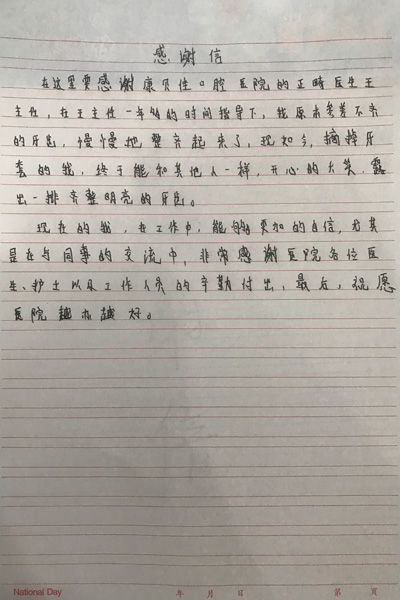 感谢信
在这里要感谢康贝佳口腔医院的正畸医生王
主任，在王主任一年多的时间指导下，我原本参差不齐
的牙齿，慢慢把整齐起来了，现如今，摘掉牙
套的我，终于能和其他人一样，开心的大笑，露
出一排齐整明亮的牙齿。
现在的我，在工作中，能够更加的自信，尤其
是在与同事的交流中，非常感谢医院各位医
生、护士以及工作人员的辛勤付出，最后，祝愿
医院越办越好。
National Day 年 月 日 第 页